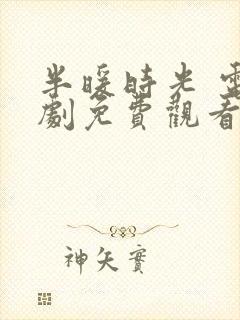 半暖時光 電
劇免費觀看
神矢實